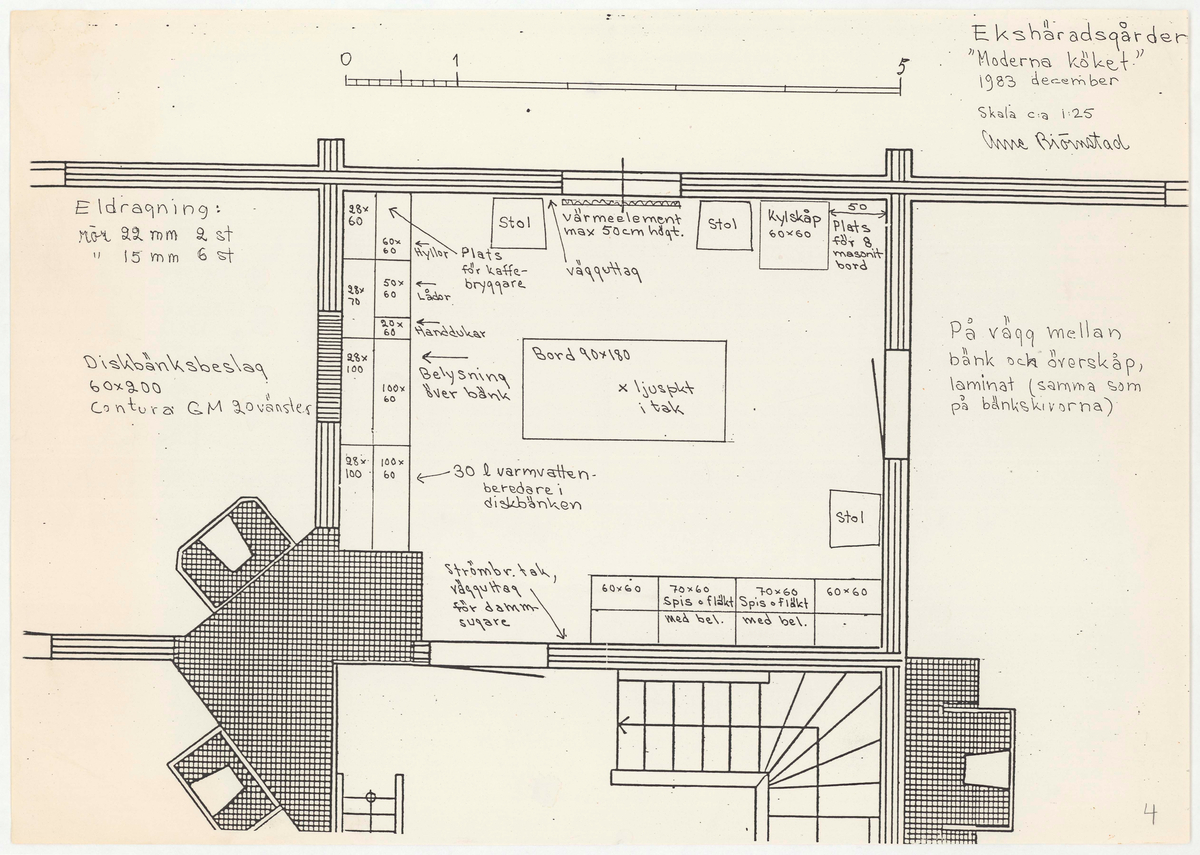 0
1
5
Ekshäradsgården
"Moderna köket"
1983 december
Skala c:a 1:25
Arne Björnstad
Eldragning:
rör 22 mm 2 st
" 15 mm 6 st
28×
60
60×
60
Hyllor
Plats
för kaffe-
bryggare
Stol
värmeelement
max 50cm högt.
vägguttag
Stol
Kylskåp
60×60
50
Plats
för 8
masonit
bord
28×
70
50×
60
Lådor
20×
60
Handdukar
28×
100
100×
60
Belysning
över bänk
Bord 90×180
x ljuspkt
i tak
Diskbänksbeslag
60×200
Contura GM 20 vänster
På vägg mellan
bänk och överskåp,
laminat (samma som
på bänkskivorna)
28×
100
100×
60
30 l varmvatten-
beredare i
diskbänken
Stol
Strömbr. tak,
vägguttag
för damm-
sugare
60×60
70×60
Spis o fläkt
med bel.
70×60
Spis o fläkt
med bel.
60×60
4